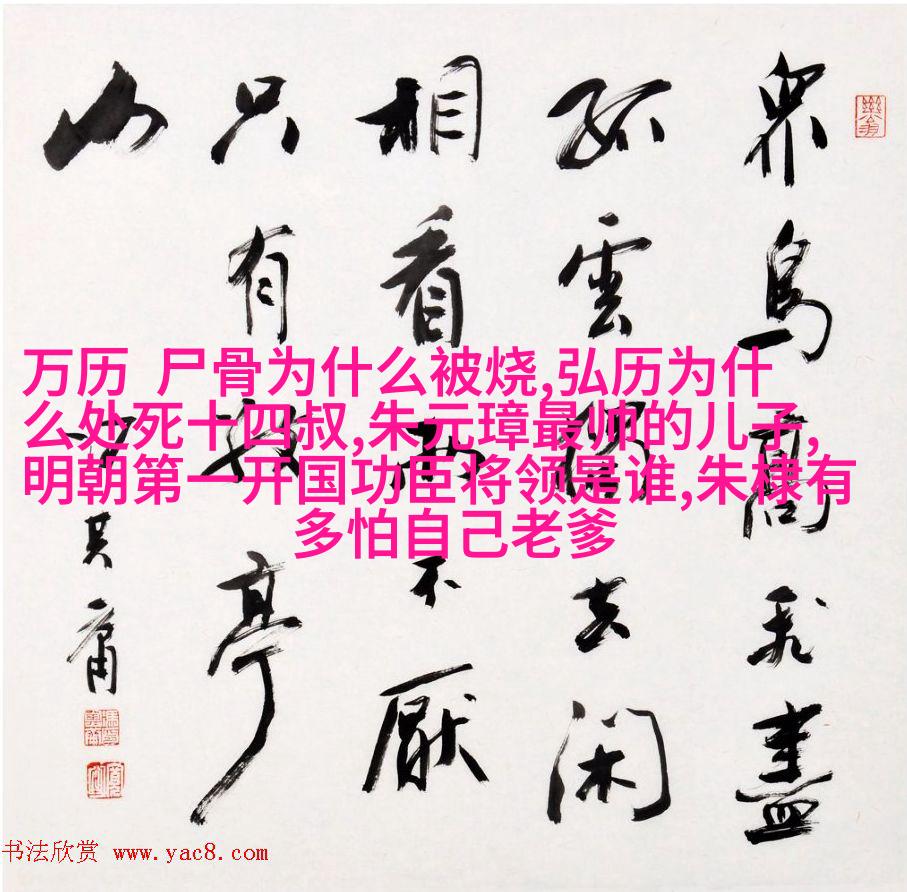 眾鳥高飛盡
孤雲獨去閑
相看兩不厭
只有敬亭山
其庸
万历 尸骨为什么被烧,弘历为什
么处死十四叔,朱元璋最帅的儿子,
明朝第一开国功臣将领是谁,朱棣有
多怕自己老爹
书法欣赏 www.yac8.com